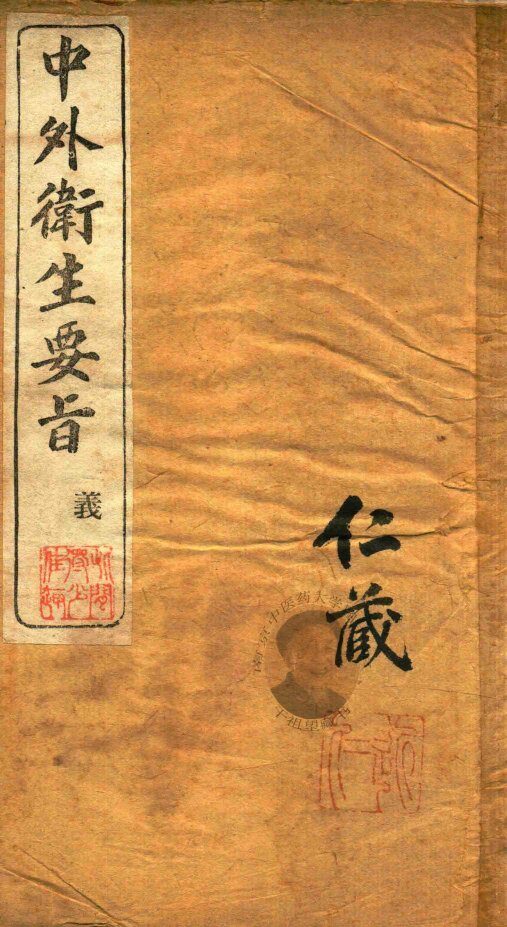 中外衛生要旨
義
仁藏
南京中医药大学
干祖望藏书